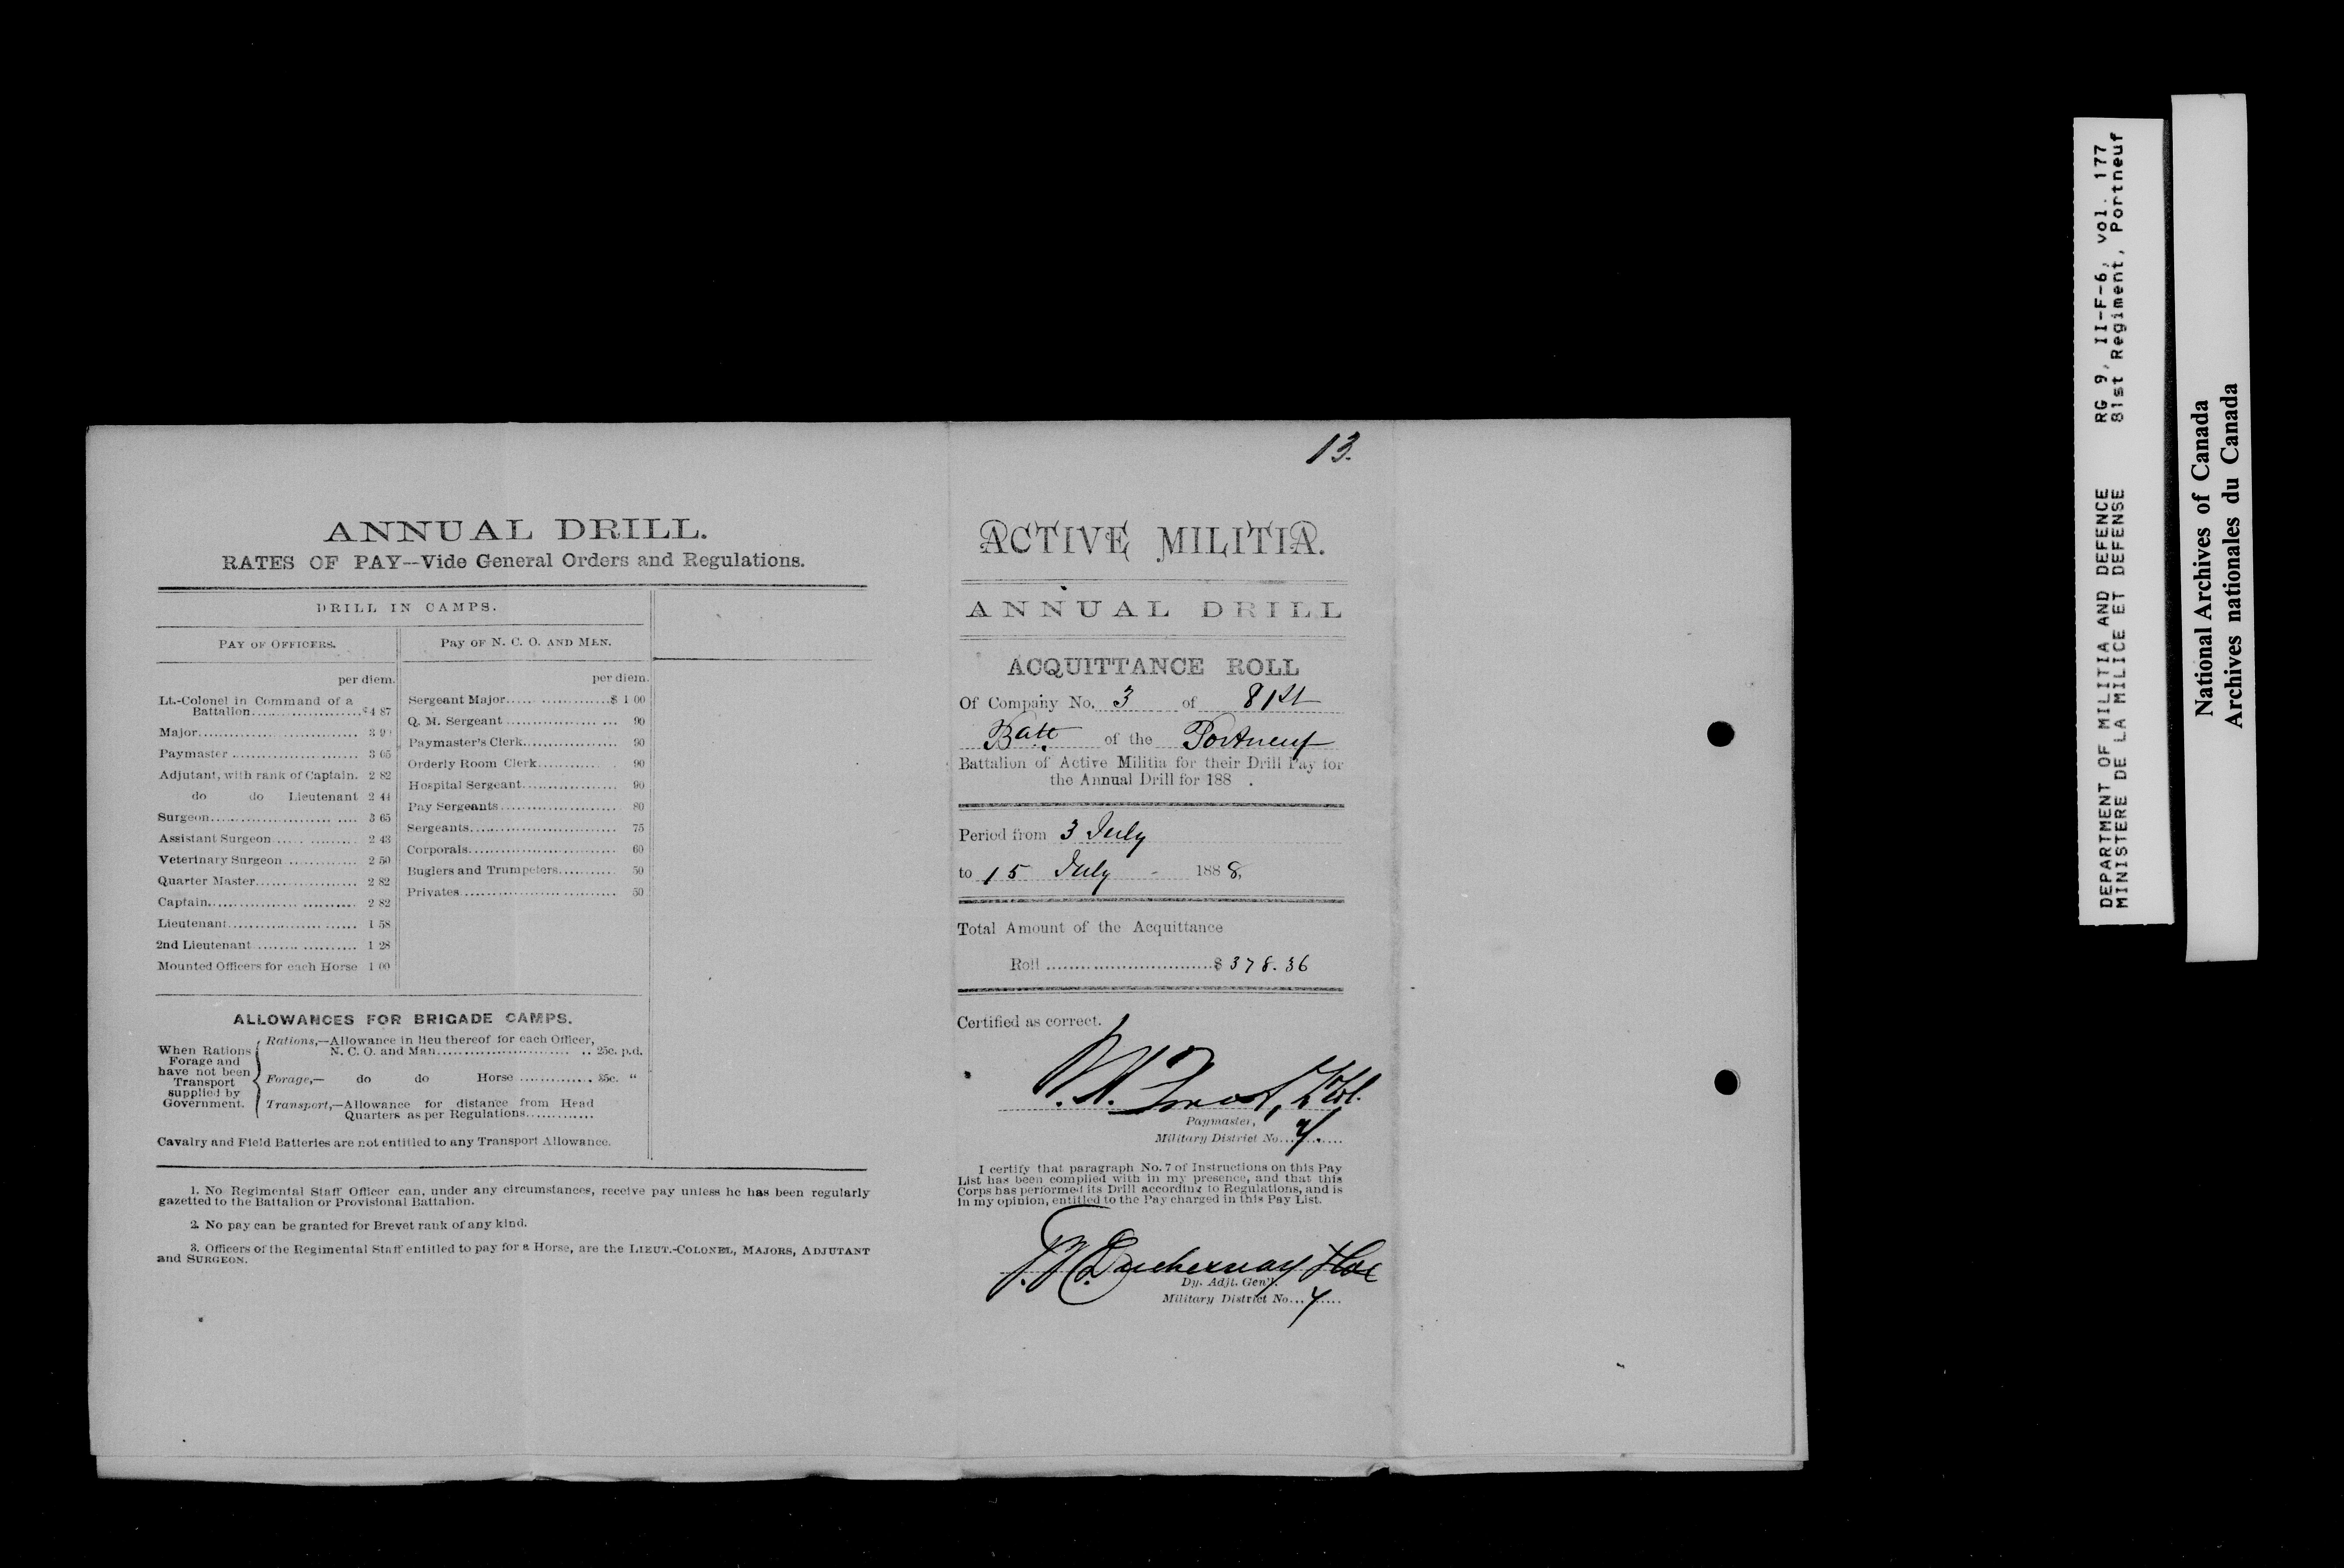 13.
ANNUAL DRILL.
RATES OF PAY--Vide General Orders and Regulations.
DRILL IN CAMPS.
PAY OF OFFICERS.
per diem.
Lt.-Colonel in Command of a
Battalion.................... $4 87
Major............................ 3 9
Paymaster ....................... 3 05
Adjutant, with rank of Captain. 2 82
do do Lieutenant 2 44
Surgeon...................... .... 3 65
Assistant Surgeon ..... .......... 2 43
Veterinary Surgeon ............. 2 50
Quarter Master................... 2 82
Captain................. .......... 2 82
Lieutenant................. ...... 1 58
2nd Lieutenant ........ .......... 1 28
Mounted Officers for each Horse 1 00
Pay OF N. C. O. AND MEN.
per diem.
Sergeant Major...... .............$ 1 00
Q. M. Sergeant ................ ... 90
Paymaster's Clerk................. 90
Orderly Room Clerk............ . 90
Hospital Sergeant................. 90
Pay Sergeants..................... 80
Sergeants........................... 75
Corporals........................... 60
Buglers and Trumpeters........... 50
Privates ............................ 50
ALLOWANCES FOR BRIGADE CAMPS.
When Rations
Forage and
have not been
Transport
supplied by
Government.
Rations,—Allowance in lieu thereof for each Officer,
N. C. O. and Man.......................... .. 25c. p.d.
Forage,— do do Horse .............. 35c. "
Transport,—Allowance for distance from Head
Quarters as per Regulations.............
Cavalry and Field Batteries are not entitled to any Transport Allowance.
1. No Regimental Staff Officer can, under any circumstances, receive pay unless he has been regularly
gazetted to the Battalion or Provisional Battalion.
2. No pay can be granted for Brevet rank of any kind.
3. Officers of the Regimental Staff entitled to pay for a Horse, are the LIEUT.-COLONEL, MAJORS, ADJUTANT
and SURGEON.
ACTIVE MILITIA.
ANNUAL DRILL
ACQUITTANCE ROLL
Of Company No. 3 of 81st
Batt. of the Portneuf
Battalion of Active Militia for their Drill Pay for
the Annual Drill for 188 .
Period from 3 July
to 15 July - 188 8,
Total Amount of the Acquittance
Roll ..............................$ 378.36
Certified as correct.
Paymaster,
Military District No. 7.
I certify that paragraph No. 7 of Instructions on this Pay
List has been complied with in my presence, and that this
Corps has performed its Drill according to Regulations, and is
in my opinion, entitled to the Pay charged in this Pay List.
Duchesnay
Dy. Adjt. Gen'l.
Military District No... 7.....
DEPARTMENT OF MILITIA AND DEFENCE RG 9, II-F-6, vol. 177
MINISTERE DE LA MILICE ET DEFENSE 81st Regiment, Portneuf
National Archives of Canada
Archives nationales du Canada